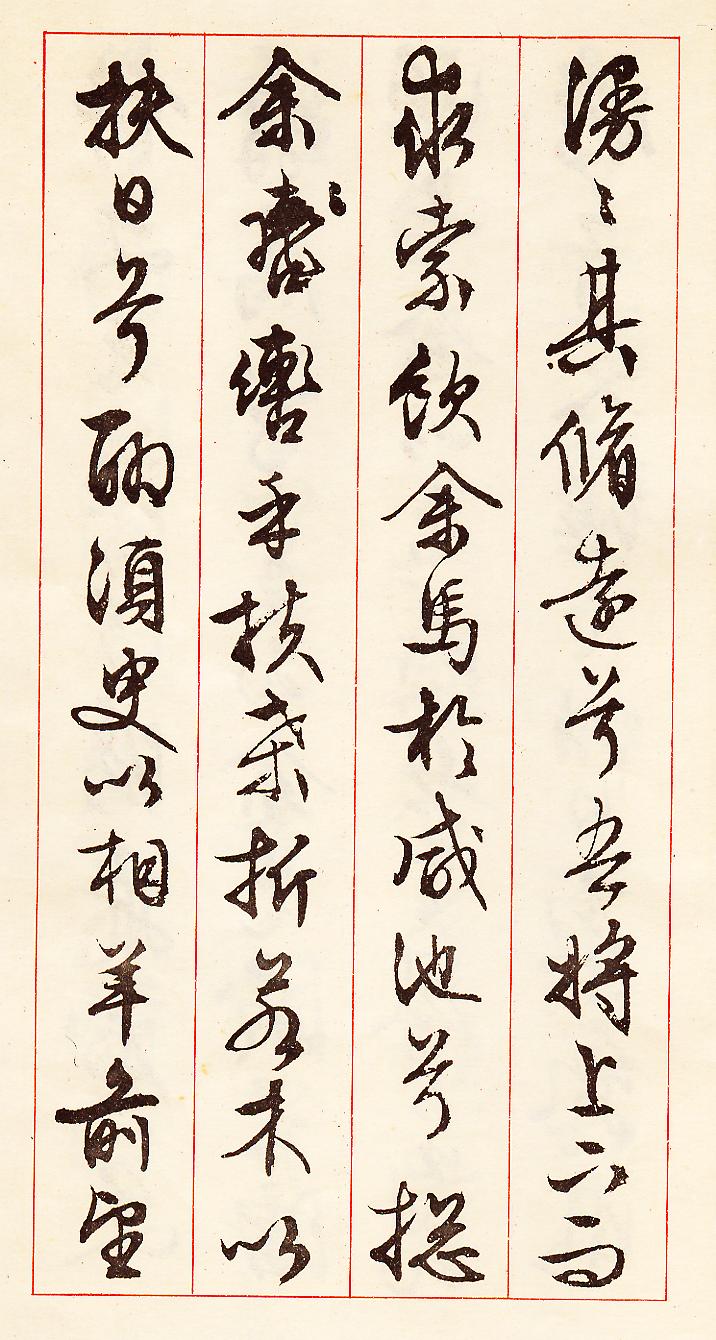 漫〻其脩遠兮吾將上下而
求索飲余馬於咸池兮揔
余轡乎扶桑折若木以
扶日兮聊須臾以相羊前望